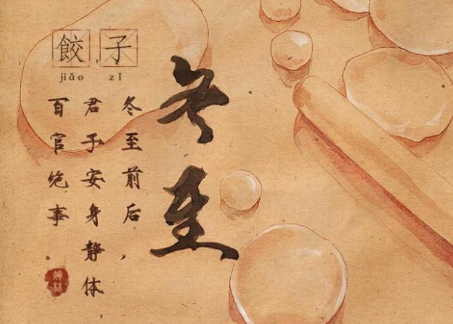 冬至
餃子
jiǎo zǐ
冬至前后，
君子安身静体，
百官绝事